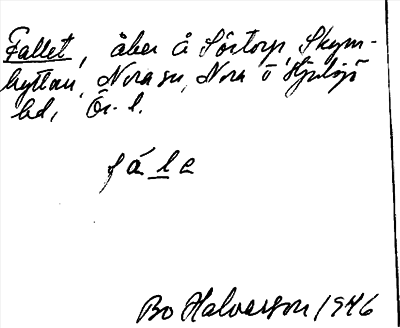 Fallet, åker å Sörtorp, Skym-
hyttan, Nora sn, Nora o Hjulsjö
bd, Ör. l.
fála
Bo Halvarson 1946